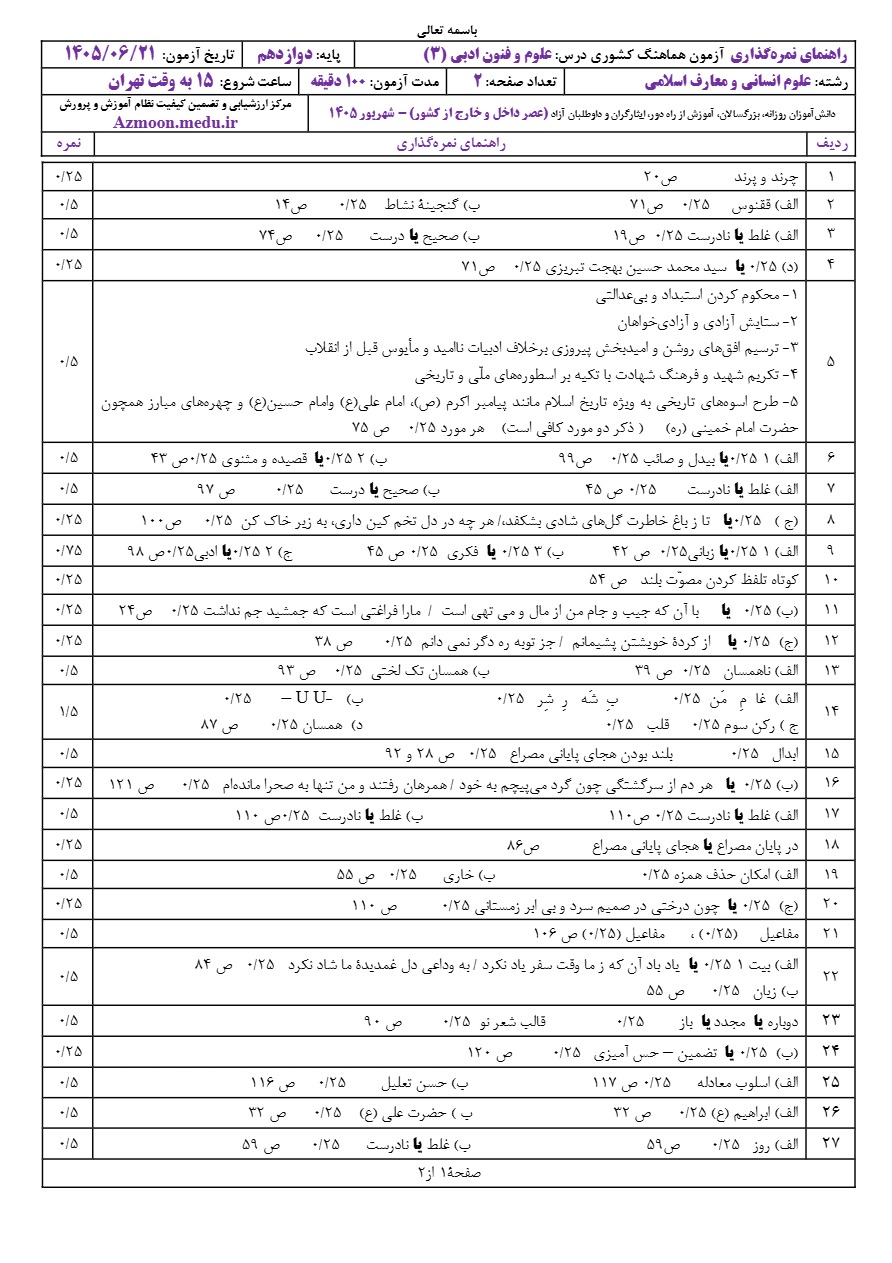 باسمه تعالی
راهنمای نمره‌گذاری آزمون هماهنگ کشوری درس: علوم و فنون ادبی (۳) پایه: دوازدهم تاریخ آزمون: ۱۴۰۵/۰۶/۲۱
رشته: علوم انسانی و معارف اسلامی تعداد صفحه: ۲ مدت آزمون: ۱۰۰ دقیقه ساعت شروع: ۱۵ به وقت تهران
دانش‌آموزان روزانه، بزرگسالان، آموزش از راه دور، ایثارگران و داوطلبان آزاد (عصر داخل و خارج از کشور) – شهریور ۱۴۰۵ مرکز ارزشیابی و تضمین کیفیت نظام آموزش و پرورش
Azmoon.medu.ir
ردیف راهنمای نمره‌گذاری نمره
۱ چرند و پرند ص۲۰ ۰/۲۵
۲ الف) ققنوس ۰/۲۵ ص۷۱ ب) گنجینهٔ نشاط ۰/۲۵ ص۱۴ ۰/۵
۳ الف) غلط یا نادرست ۰/۲۵ ص۱۹ ب) صحیح یا درست ۰/۲۵ ص۷۴ ۰/۵
۴ (د) ۰/۲۵ یا سید محمد حسین بهجت تبریزی ۰/۲۵ ص۷۱ ۰/۲۵
۱- محکوم کردن استبداد و بی‌عدالتی
۲- ستایش آزادی و آزادی‌خواهان
۳- ترسیم افق‌های روشن و امیدبخش پیروزی برخلاف ادبیات ناامید و مأیوس قبل از انقلاب
۵ ۴- تکریم شهید و فرهنگ شهادت با تکیه بر اسطوره‌های ملّی و تاریخی ۰/۵
۵- طرح اسوه‌های تاریخی به ویژه تاریخ اسلام مانند پیامبر اکرم (ص)، امام علی(ع) وامام حسین(ع) و چهره‌های مبارز همچون
حضرت امام خمینی (ره) ( ذکر دو مورد کافی است) هر مورد ۰/۲۵ ص ۷۵
۶ الف) ۱ ۰/۲۵یا بیدل و صائب ۰/۲۵ ص۹۹ ب) ۲ ۰/۲۵یا قصیده و مثنوی ۰/۲۵ص ۴۳ ۰/۵
۷ الف) غلط یا نادرست ۰/۲۵ ص ۴۵ ب) صحیح یا درست ۰/۲۵ ص ۹۷ ۰/۵
۸ (ج ) ۰/۲۵یا تا ز باغ خاطرت گل‌های شادی بشکفد،/ هر چه در دل تخم کین داری، به زیر خاک کن ۰/۲۵ ص۱۰۰ ۰/۲۵
۹ الف) ۱ ۰/۲۵یا زبانی۰/۲۵ ص ۴۲ ب) ۳ ۰/۲۵ یا فکری ۰/۲۵ ص ۴۵ ج) ۲ ۰/۲۵یا ادبی۰/۲۵ص ۹۸ ۰/۷۵
۱۰ کوتاه تلفظ کردن مصوّت بلند ص ۵۴ ۰/۲۵
۱۱ (ب) ۰/۲۵ یا با آن که جیب و جام من از مال و می تهی است / مارا فراغتی است که جمشید جم نداشت ۰/۲۵ ص۲۴ ۰/۲۵
۱۲ (ج) ۰/۲۵ یا از کردهٔ خویشتن پشیمانم / جز توبه ره دگر نمی دانم ۰/۲۵ ص ۳۸ ۰/۲۵
۱۳ الف) ناهمسان ۰/۲۵ ص ۳۹ ب) همسان تک لختی ۰/۲۵ ص ۹۳ ۰/۵
الف) غا مِ مَن ۰/۲۵ بِ شَه رِ شِر ۰/۲۵ ب) – U U– ۰/۲۵
۱۴ ج ) رکن سوم ۰/۲۵ قلب ۰/۲۵ د) همسان ۰/۲۵ ص ۸۷ ۱/۵
۱۵ ابدال ۰/۲۵ بلند بودن هجای پایانی مصراع ۰/۲۵ ص ۲۸ و ۹۲ ۰/۵
۱۶ (ب) ۰/۲۵ یا هر دم از سرگشتگی چون گرد می‌پیچم به خود / همرهان رفتند و من تنها به صحرا مانده‌ام ۰/۲۵ ص ۱۲۱ ۰/۲۵
۱۷ الف) غلط یا نادرست ۰/۲۵ ص۱۱۰ ب) غلط یا نادرست ۰/۲۵ص ۱۱۰ ۰/۵
۱۸ در پایان مصراع یا هجای پایانی مصراع ص۸۶ ۰/۲۵
۱۹ الف) امکان حذف همزه ۰/۲۵ ب) خاری ۰/۲۵ ص ۵۵ ۰/۵
۲۰ (ج) ۰/۲۵ یا چون درختی در صمیم سرد و بی ابر زمستانی ۰/۲۵ ص ۱۱۰ ۰/۲۵
۲۱ مفاعیل (۰/۲۵) ، مفاعیل (۰/۲۵) ص ۱۰۶ ۰/۵
الف) بیت ۱ ۰/۲۵ یا یاد باد آن که ز ما وقت سفر یاد نکرد / به وداعی دل غمدیدهٔ ما شاد نکرد ۰/۲۵ ص ۸۴
۲۲ ب) زیان ۰/۲۵ ص ۵۵ ۰/۵
۲۳ دوباره یا مجدد یا باز ۰/۲۵ قالب شعر نو ۰/۲۵ ص ۹۰ ۰/۵
۲۴ (ب) ۰/۲۵ یا تضمین – حس آمیزی ۰/۲۵ ص ۱۲۰ ۰/۲۵
۲۵ الف) اسلوب معادله ۰/۲۵ ص ۱۱۷ ب) حسن تعلیل ۰/۲۵ ص ۱۱۶ ۰/۵
۲۶ الف) ابراهیم (ع) ۰/۲۵ ص ۳۲ ب ) حضرت علی (ع) ۰/۲۵ ص ۳۲ ۰/۵
۲۷ الف) روز ۰/۲۵ ص۵۹ ب) غلط یا نادرست ۰/۲۵ ص ۵۹ ۰/۵
صفحهٔ۱ از۲